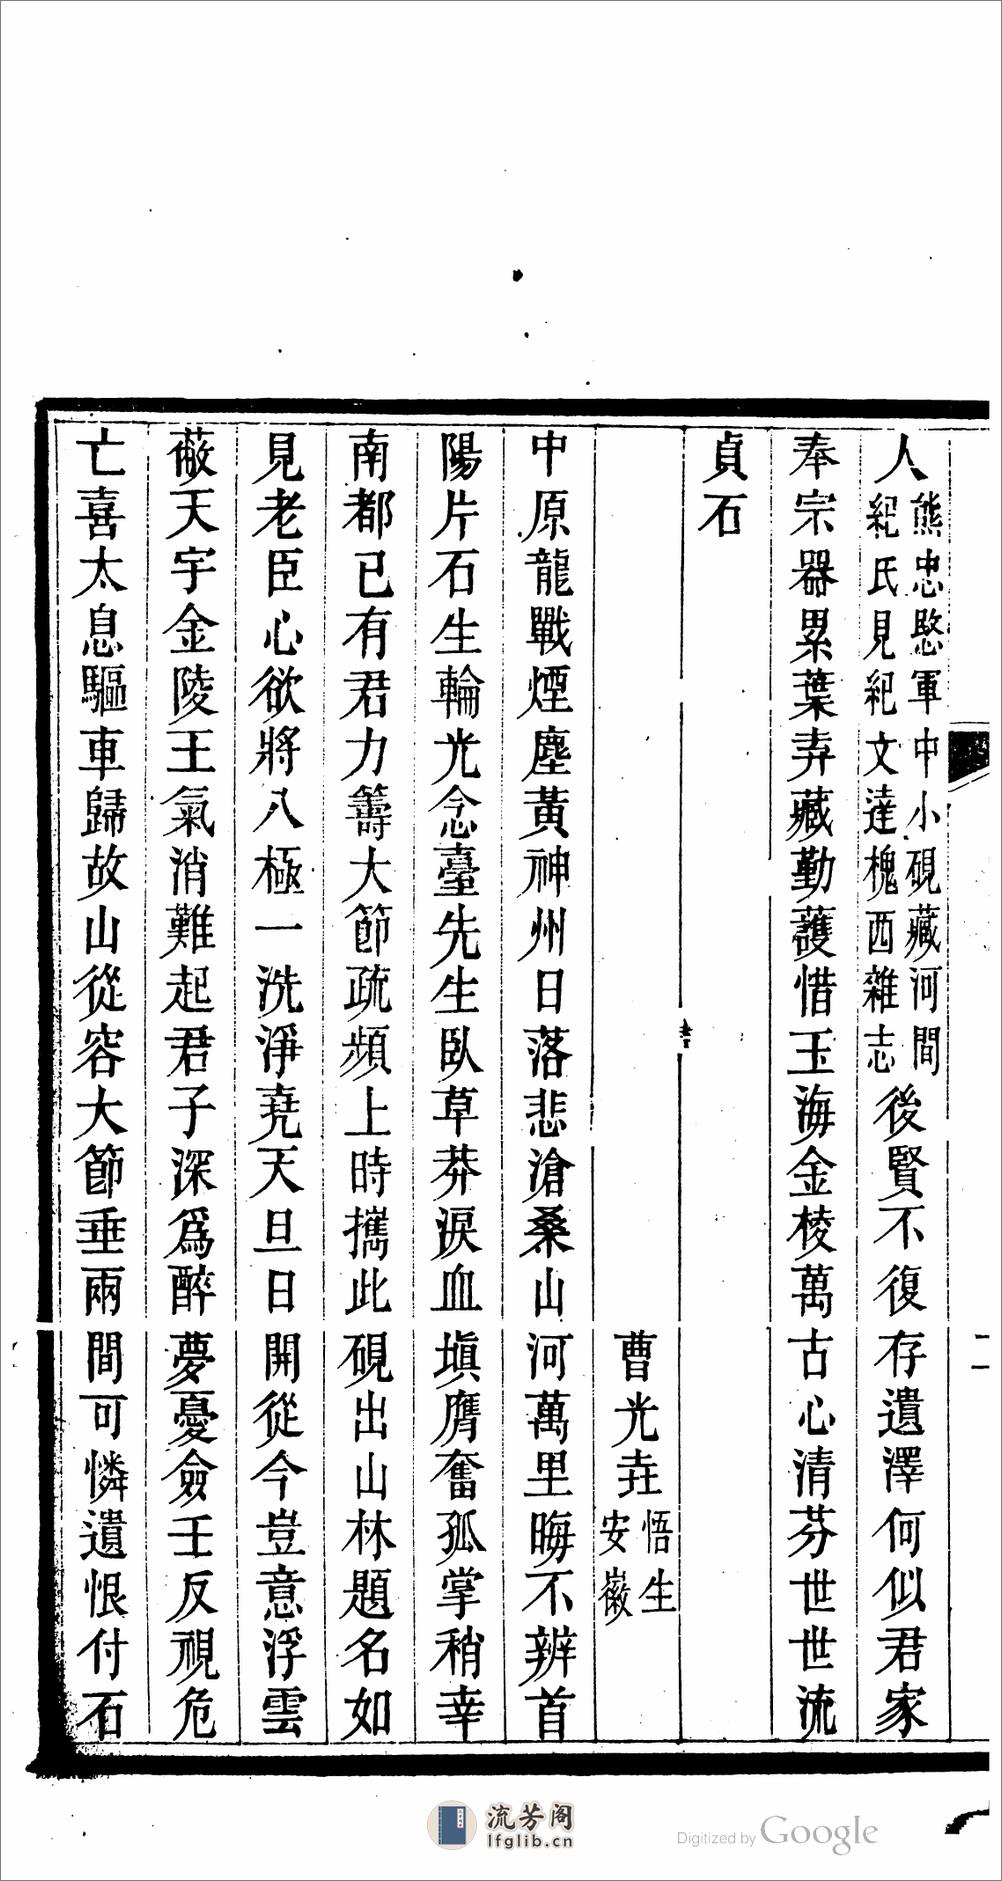 人熊忠愍軍中小硯藏河間紀氏見紀文達槐西雜志後賢不復存遺澤何似君家
奉宗器累葉弆藏勤護惜玉海金棱萬古心清芬世世流
貞石
曹光垚悟生安徽
中原龍戰煙塵黃神州日落悲滄桑山河萬里晦不辨首
陽片石生輪光念臺先生臥草莽淚血塡膺奮孤掌稍幸
南都已有君力籌大節疏頻上時攜此硯出山林題名如
見老臣心欲將八極一洗淨堯天旦日開從今豈意浮雲
蔽天宇金陵王氣消難起君子深爲醉夢憂僉壬反視危
亡喜太息驅車歸故山從容大節垂兩間可憐遺恨付石
二
流芳阁
lfglib.cn
Digitized by Google